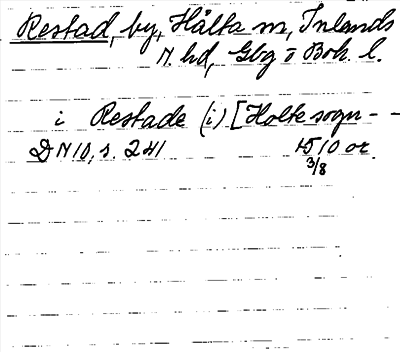 Restad, by, Hålta sn, Inlands
N. hd, Gbg o Boh. l.
i Restade (i) [Holte sogn - -
DN 10, s. 241 1510 or.
3/8